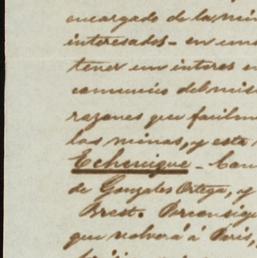 encargado de la min
interesados - en una
tener un interes en
comunico del mis
razones que facilm
las minas, y este
Echenique - Com
de Gonzales Ortega, y
Brest. Por consigu
que volverá á Paris,